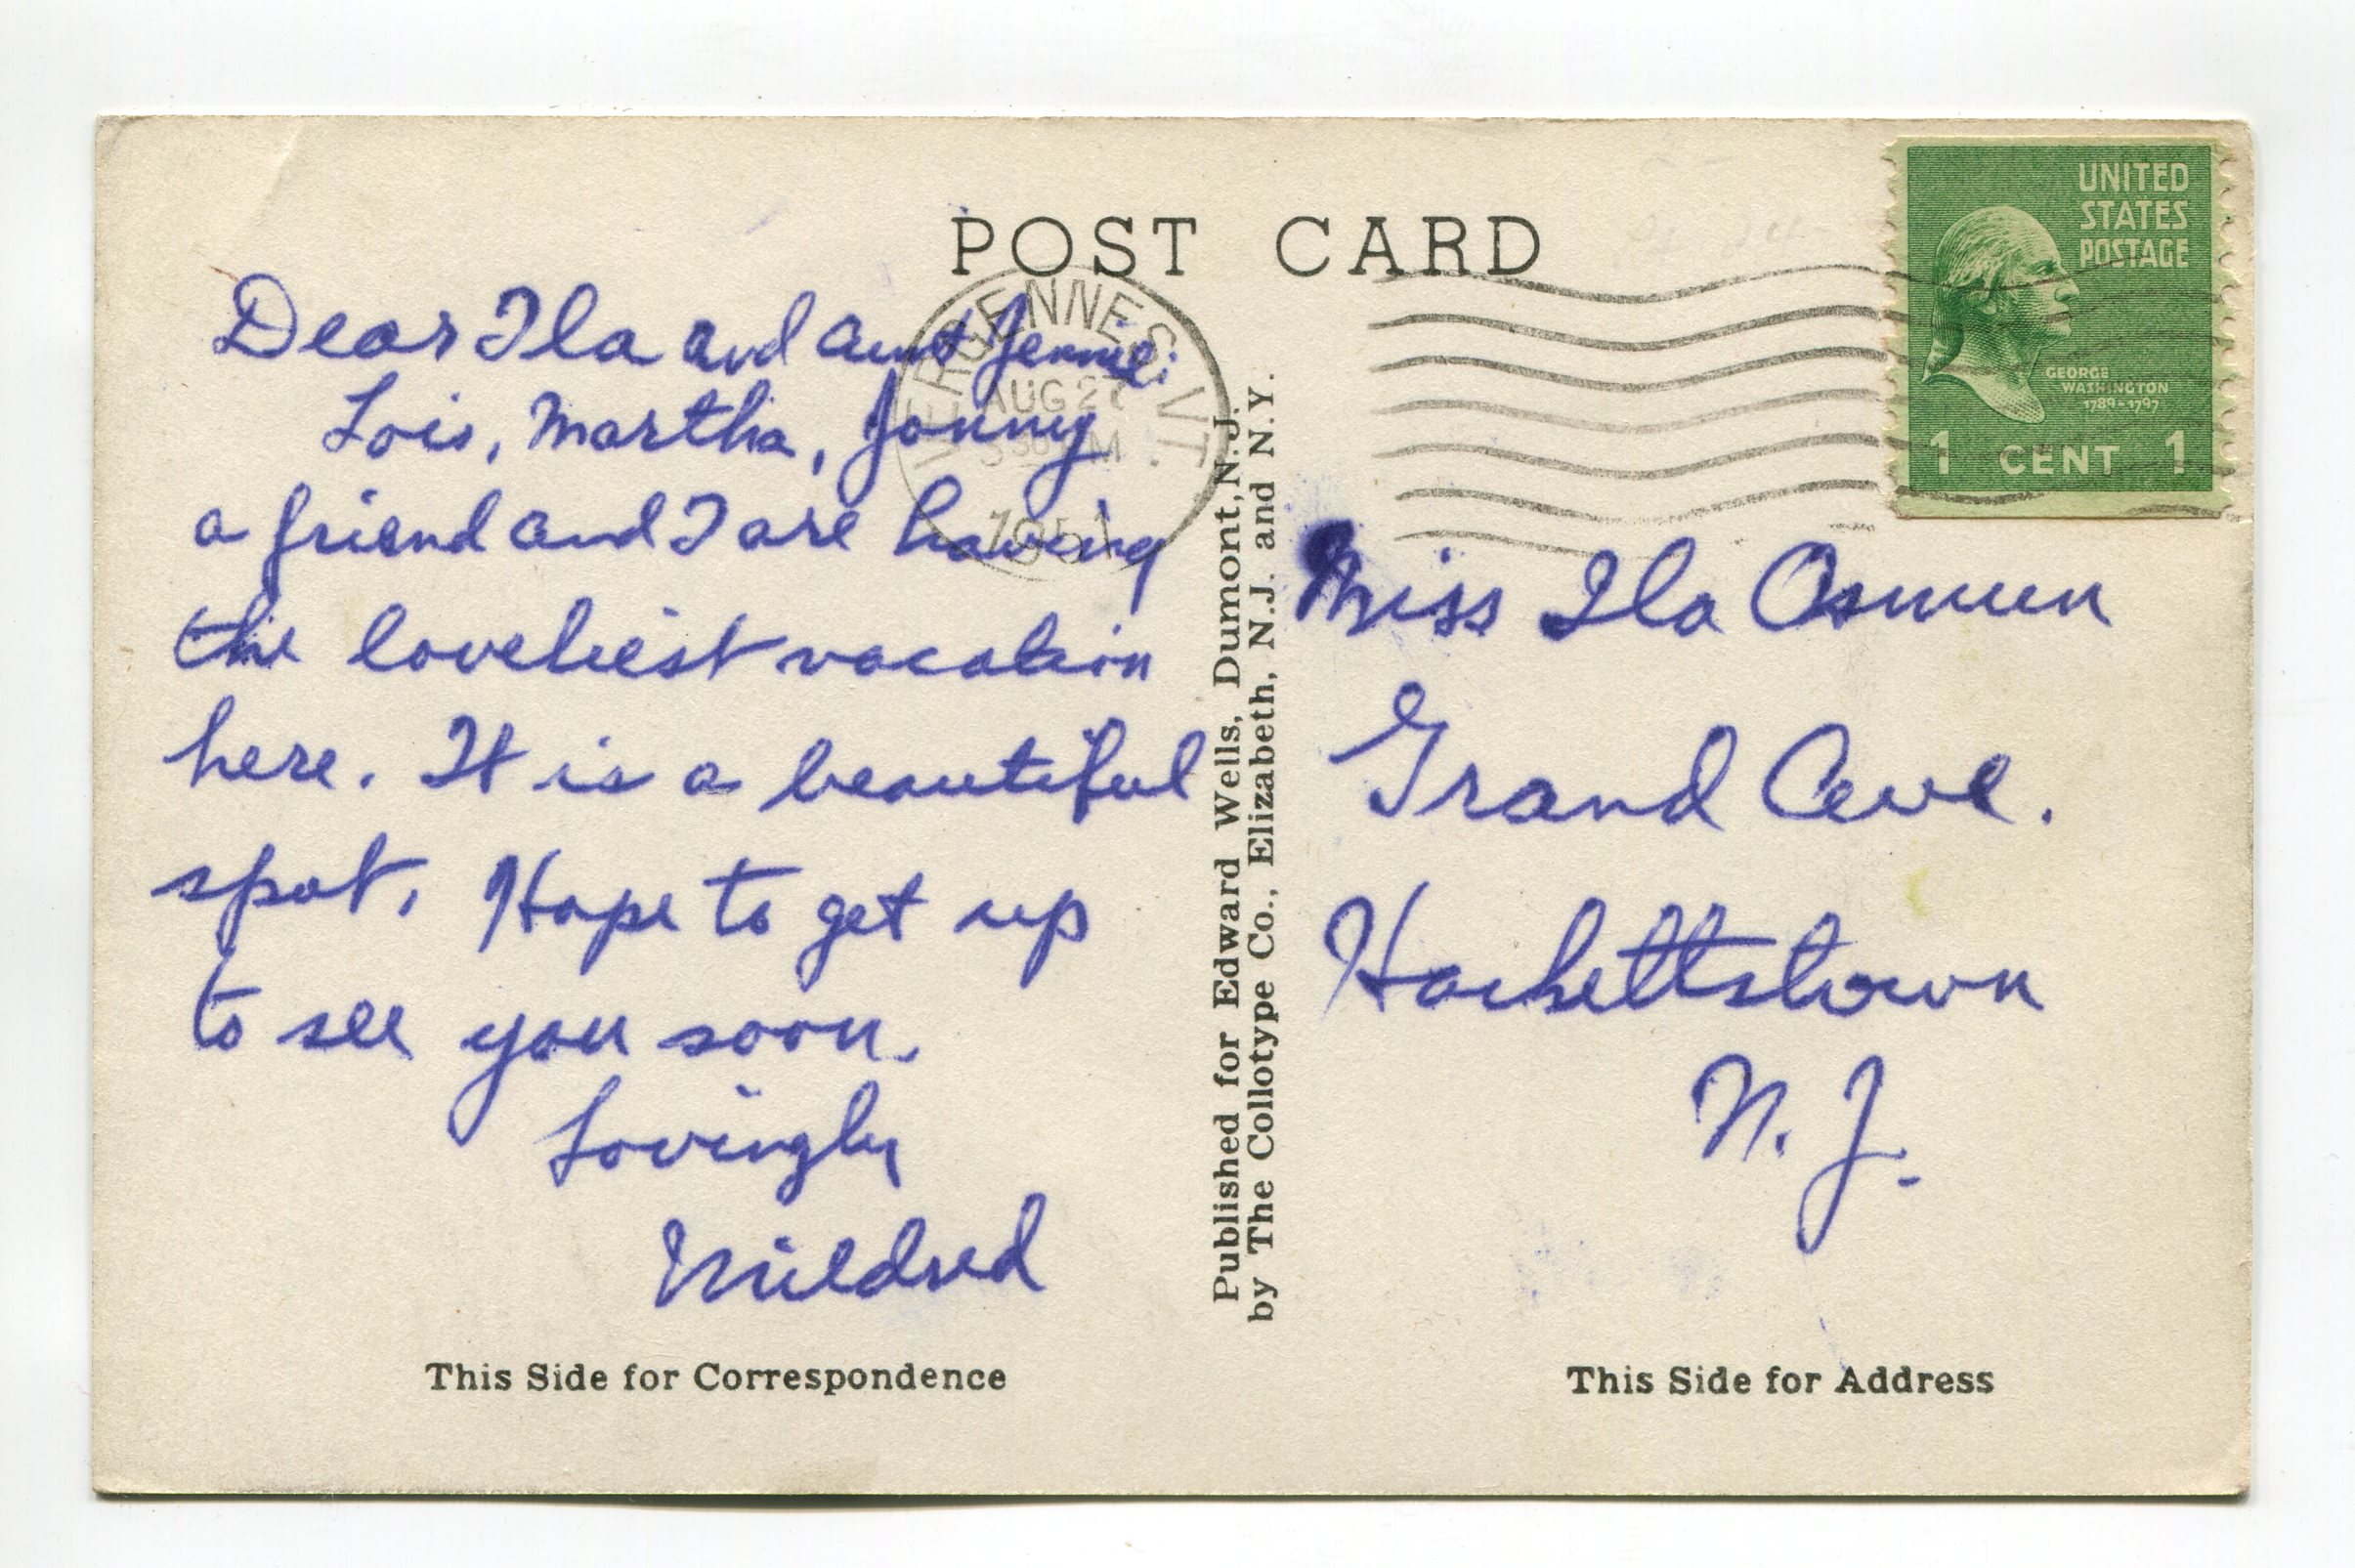 POST CARD
UNITED
STATES
POSTAGE
GEORGE
WASHINGTON
1789-1797
1 CENT 1
VERGENNES VT.
AUG 27
195
Dear Ila and Aunt Jennie:
Lois, Martha, Jonny
a friend and I are having
the loveliest vacation
here. It is a beautiful
spot. Hope to get up
to see you soon.
Lovingly
Mildred
This Side for Correspondence
Published for Edward Wells, Dumont, N.J.
by The Collotype Co., Elizabeth, N.J. and N.Y.
Miss Ila Osmun
Grand Ave.
Hackettstown
N. J.
This Side for Address